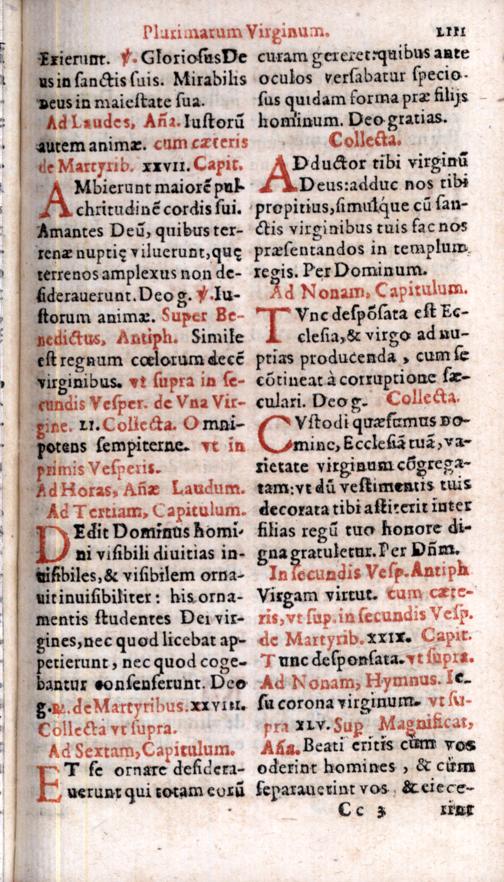 Plurimarum Virginum. LIII
Exierunt. ℣. GloriosusDe
us in sanctis suis. Mirabilis
Deus in maiestate sua.
Ad Laudes, Aña. Iustorũ
autem animæ. cum cæteris
de Martyrib. XXVII. Capit.
AMbierunt maiorẽ pul
chritudinẽ cordis sui.
Amantes Deũ, quibus ter-
renæ nuptię viluerunt, quę
terrenos amplexus non de-
siderauerunt. Deo g. ℣. Iu-
storum animæ. Super Be-
nedictus, Antiph. Simile
est regnum cœlorum decẽ
virginibus. vt supra in se-
cundis Vesper. de Vna Vir-
gine. LI. Collecta. Omni-
potens sempiterne. vt in
primis Vesperis.
Ad Horas, Añæ Laudum.
Ad Tertiam, Capitulum.
DEdit Dominus homi-
ni visibili diuitias in-
uisibiles, & visibilem orna-
uit inuisibiliter: his orna-
mentis studentes Dei vir-
gines, nec quod licebat ap-
petierunt, nec quod coge-
bantur consenserunt. Deo
g. ℟. de Martyribus. XXVIII.
Collecta vt supra.
Ad Sextam, Capitulum.
ET se ornare desidera-
uerunt qui totam eorũ
curam gereret: quibus ante
oculos versabatur specio-
sus quidam forma præ filijs
hominum. Deo gratias.
Collecta.
ADductor tibi virginũ
Deus: adduc nos tibi
propitius, simulque cũ san-
ctis virginibus tuis fac nos
præsentandos in templum
regis. Per Dominum.
Ad Nonam, Capitulum.
TVnc despõsata est Ec-
clesia, & virgo ad nu-
ptias producenda, cum se
cõtineat à corruptione sæ-
culari. Deo g. Collecta.
CVstodi quæsumus Do-
mine, Ecclesiã tuã, va-
rietate virginum cõgrega-
tam: vt dũ vestimentis tuis
decorata tibi astiterit inter
filias regũ tuo honore di-
gna gratuletur. Per Dñm.
In secundis Vesp. Antiph.
Virgam virtut. cum cæte-
ris, vt sup. in secundis Vesp.
de Martyrib. XXIX. Capit.
Tunc desponsata. vt supra.
Ad Nonam, Hymnus. Ie-
su corona virginum. vt su-
pra XLV. Sup Magnificat,
Aña. Beati eritis cùm vos
oderint homines, & cùm
separauerint vos, & eiece-
Cc 3 rint